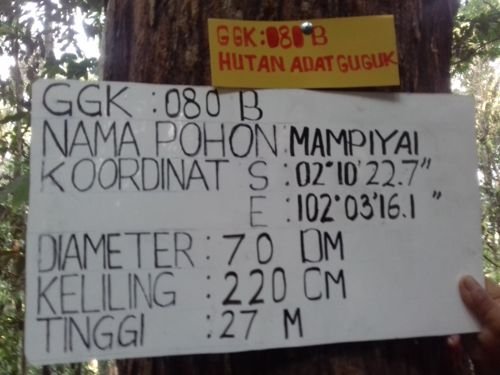 GGK:080 B
HUTAN ADAT GUGUK
GGK :080 B
NAMA POHON:MAMPIYAI
KOORDINAT S :02°10'22.7"
E :102°03'16.1"
DIAMETER :70 DM
KELILING :220 CM
TINGGI :27 M